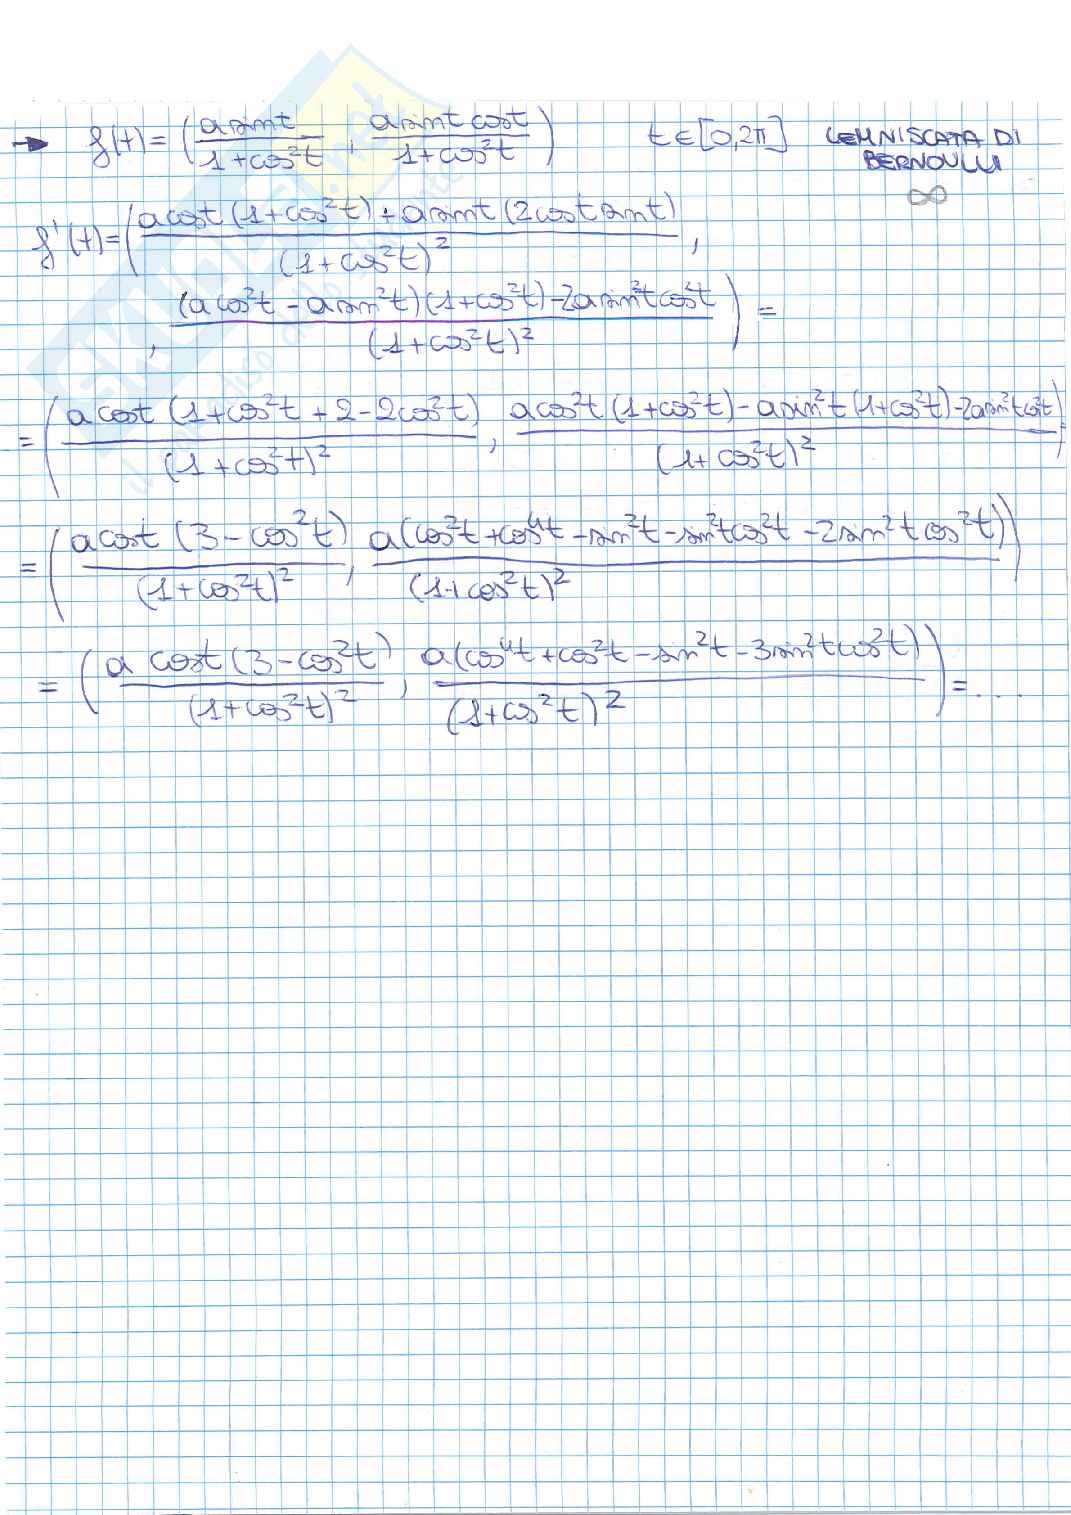 → f(t) = (a sint / 1+cos²t , a sint cost / 1+cos²t) t ∈ [0,2π] LEMNISCATA DI BERNOULLI
∞
f'(t) = (a cost (1+cos²t) + a sint (2cost sint) / (1+cos²t)² ,
, (a cos²t - a sin²t)(1+cos²t) - 2a sin²t cos²t / (1+cos²t)²) =
= (a cost (1+cos²t + 2 - 2cos²t) / (1+cos²t)² , a cos²t (1+cos²t) - a sin²t (1+cos²t) - 2a sin²t cos²t / (1+cos²t)²) =
= (a cost (3 - cos²t) / (1+cos²t)² , a(cos²t + cos⁴t - sin²t - sin²t cos²t - 2 sin²t cos²t) / (1+cos²t)²)
= (a cost (3 - cos²t) / (1+cos²t)² , a(cos⁴t + cos²t - sin²t - 3 sin²t cos²t) / (1+cos²t)²) = ....